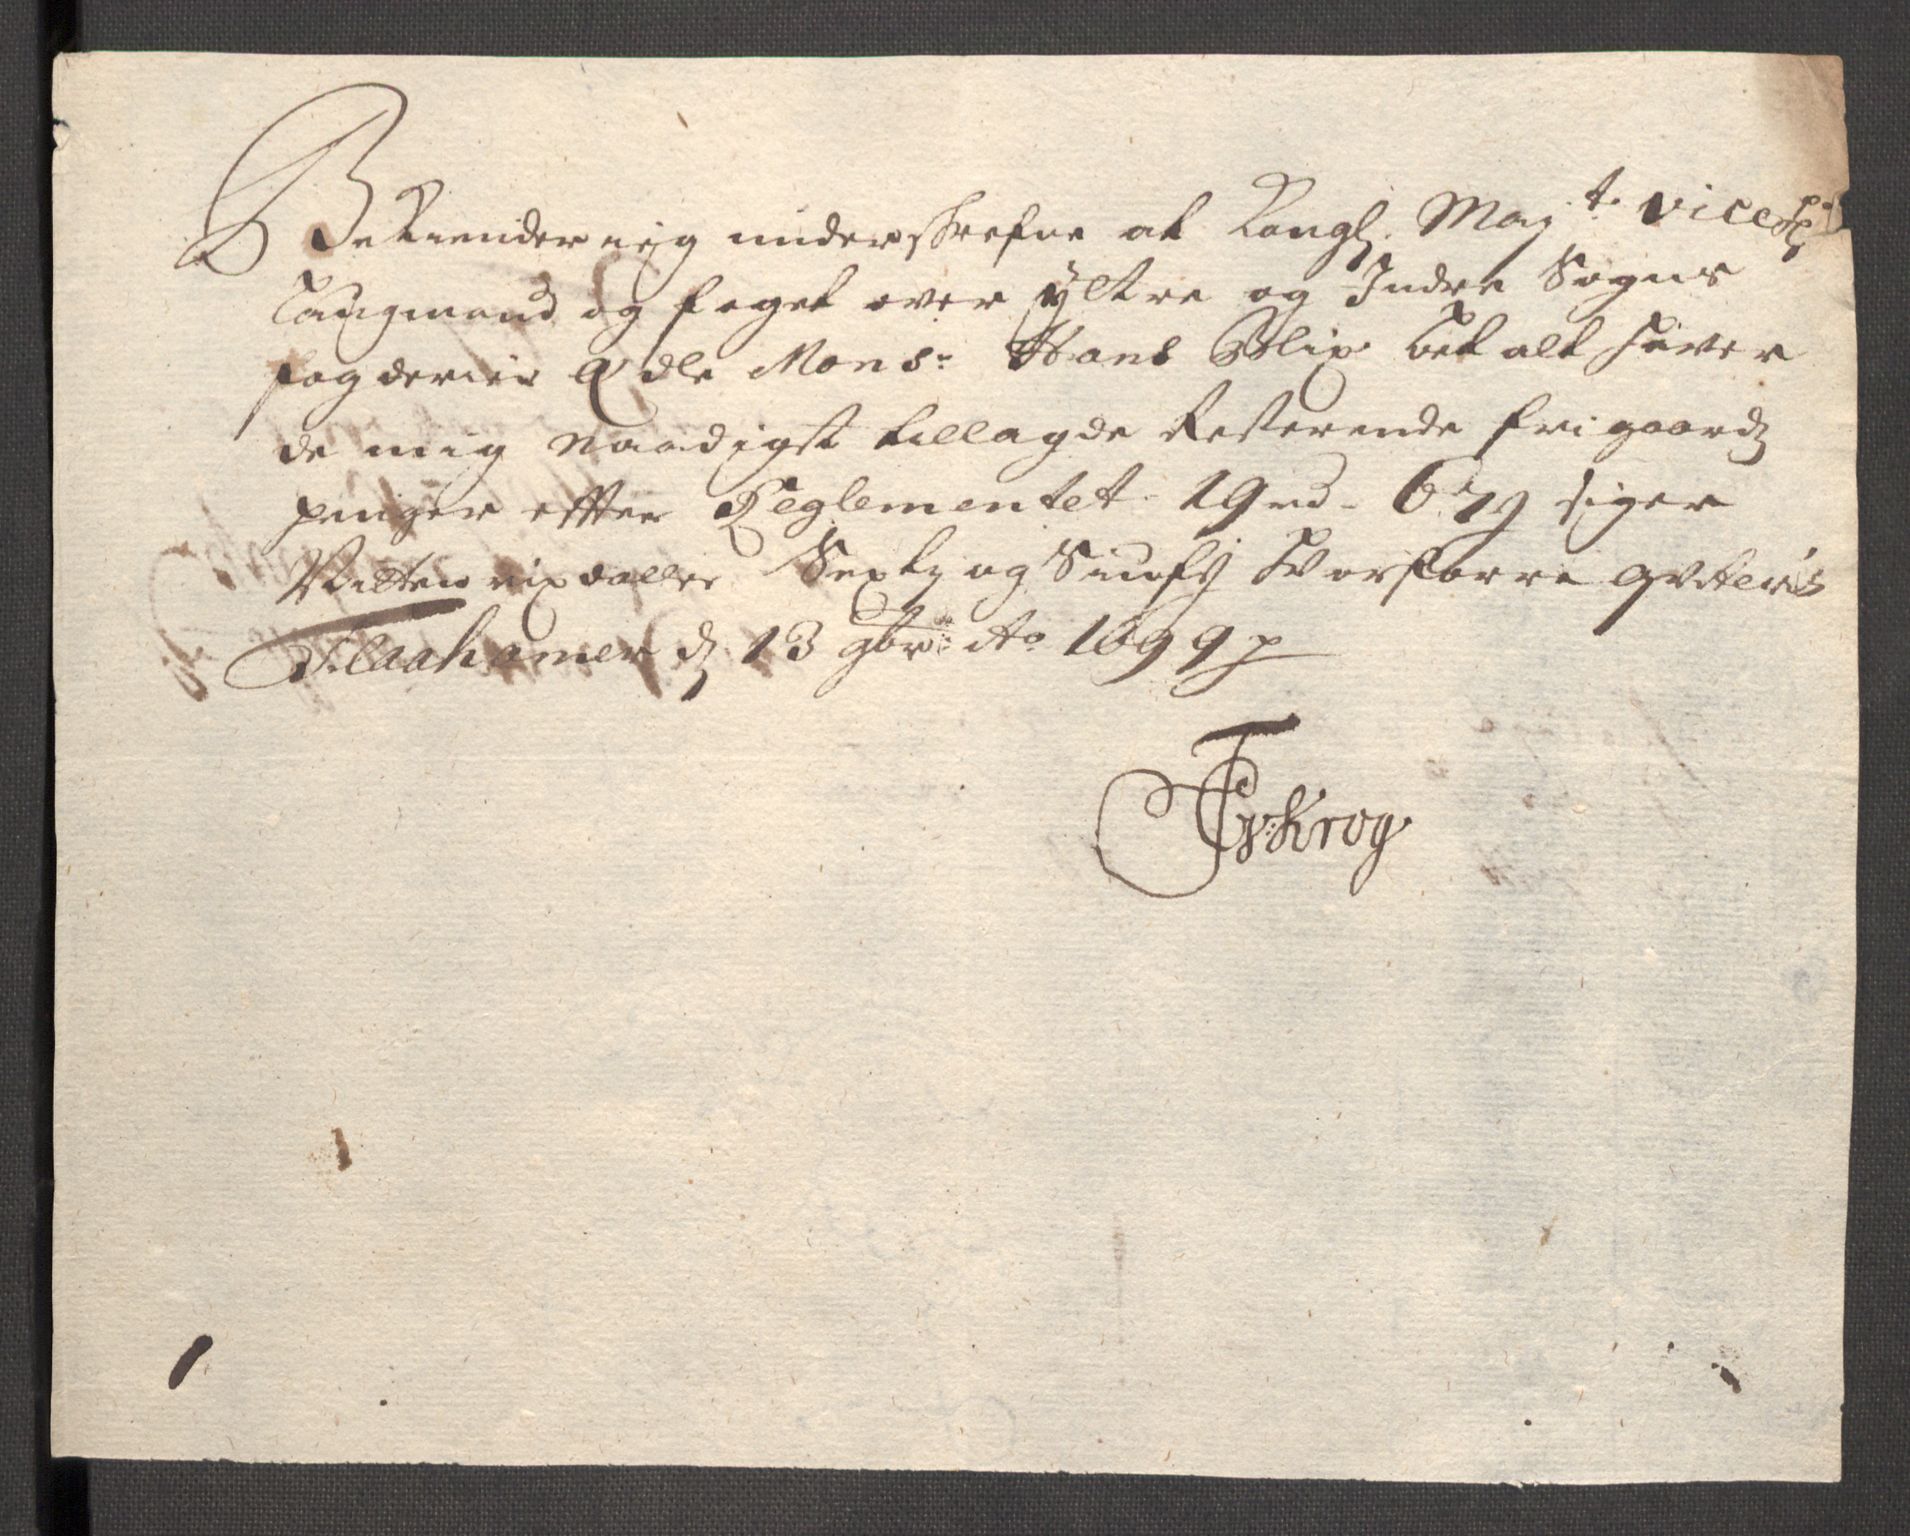 Bekiender ieg underskrefne at Kongl: May.ts vice
Laugmand og foget over yttre og Indre Sogns
fogderier Edle Mons:r Hans Blix betalt haver
de mig Naadigst tillagde Resterende frigaardz
penger efter Reglementet - 19 rd - 67 s siger
Nitten rixdaller Sexti og Siuf s Hvorforre qviteris
Flaahamer d 13 9br: Ao 1699 p
G: v: Krog